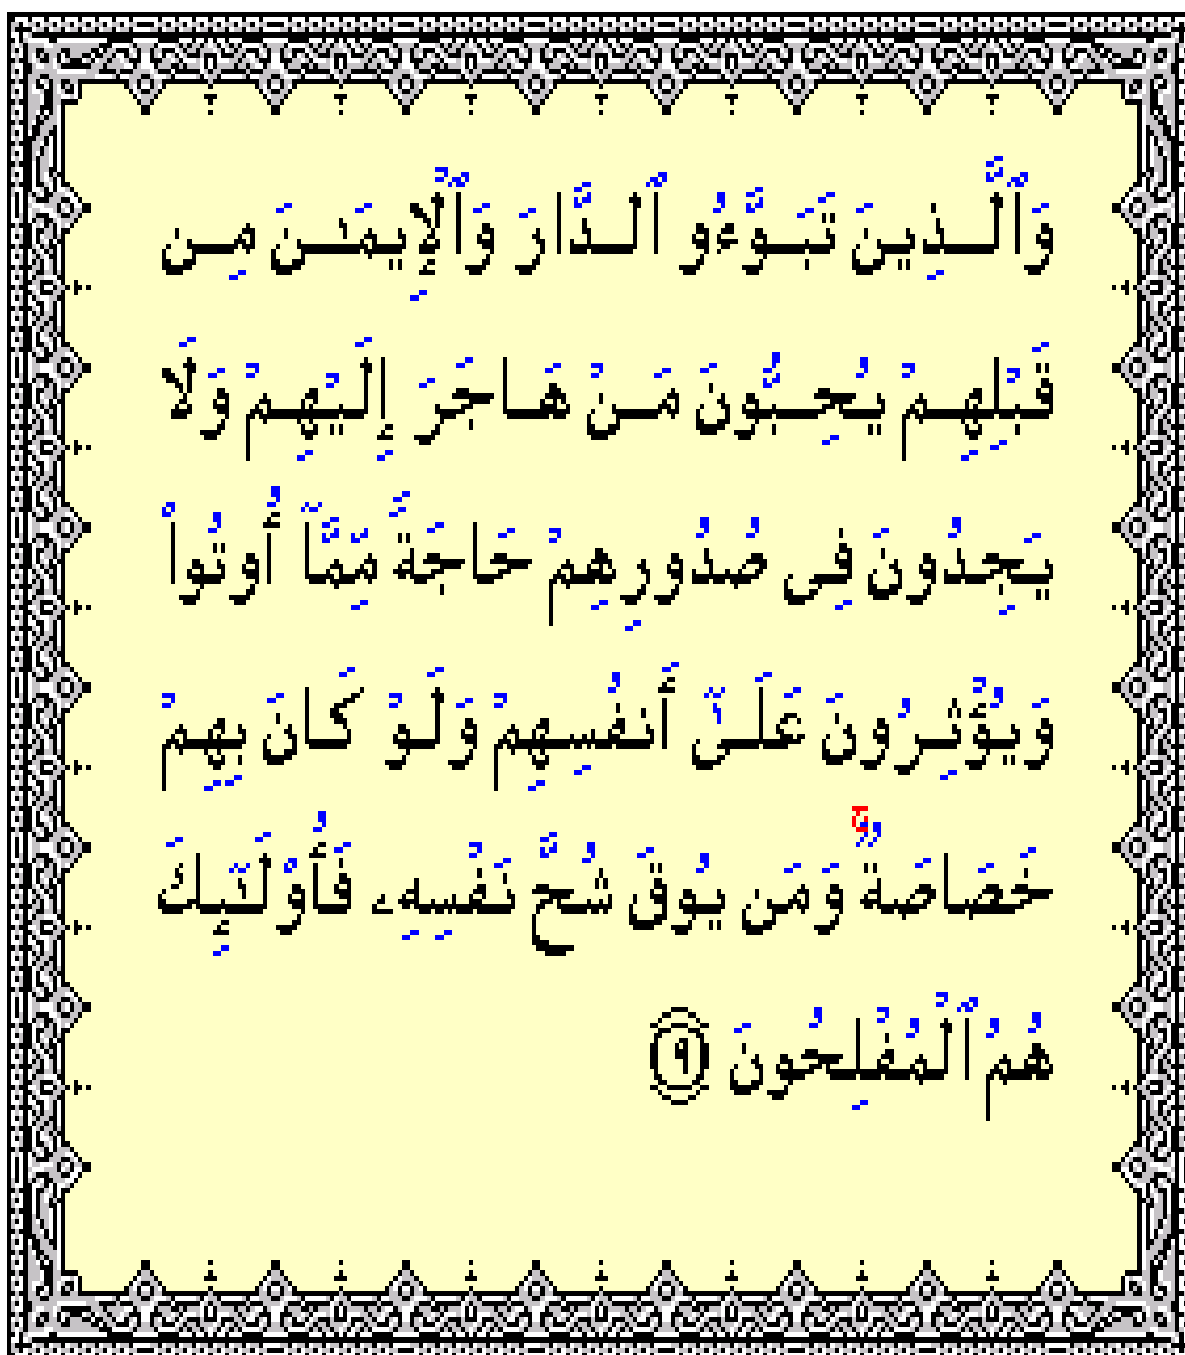 وَٱلَّذِينَ تَبَوَّءُو ٱلدَّارَ وَٱلْإِيمَـٰنَ مِن
قَبْلِهِمْ يُحِبُّونَ مَنْ هَاجَرَ إِلَيْهِمْ وَلَا
يَجِدُونَ فِى صُدُورِهِمْ حَاجَةً مِّمَّآ أُوتُوا۟
وَيُؤْثِرُونَ عَلَىٰٓ أَنفُسِهِمْ وَلَوْ كَانَ بِهِمْ
خَصَاصَةٌ ۚ وَمَن يُوقَ شُحَّ نَفْسِهِۦ فَأُو۟لَـٰٓئِكَ
هُمُ ٱلْمُفْلِحُونَ ٩